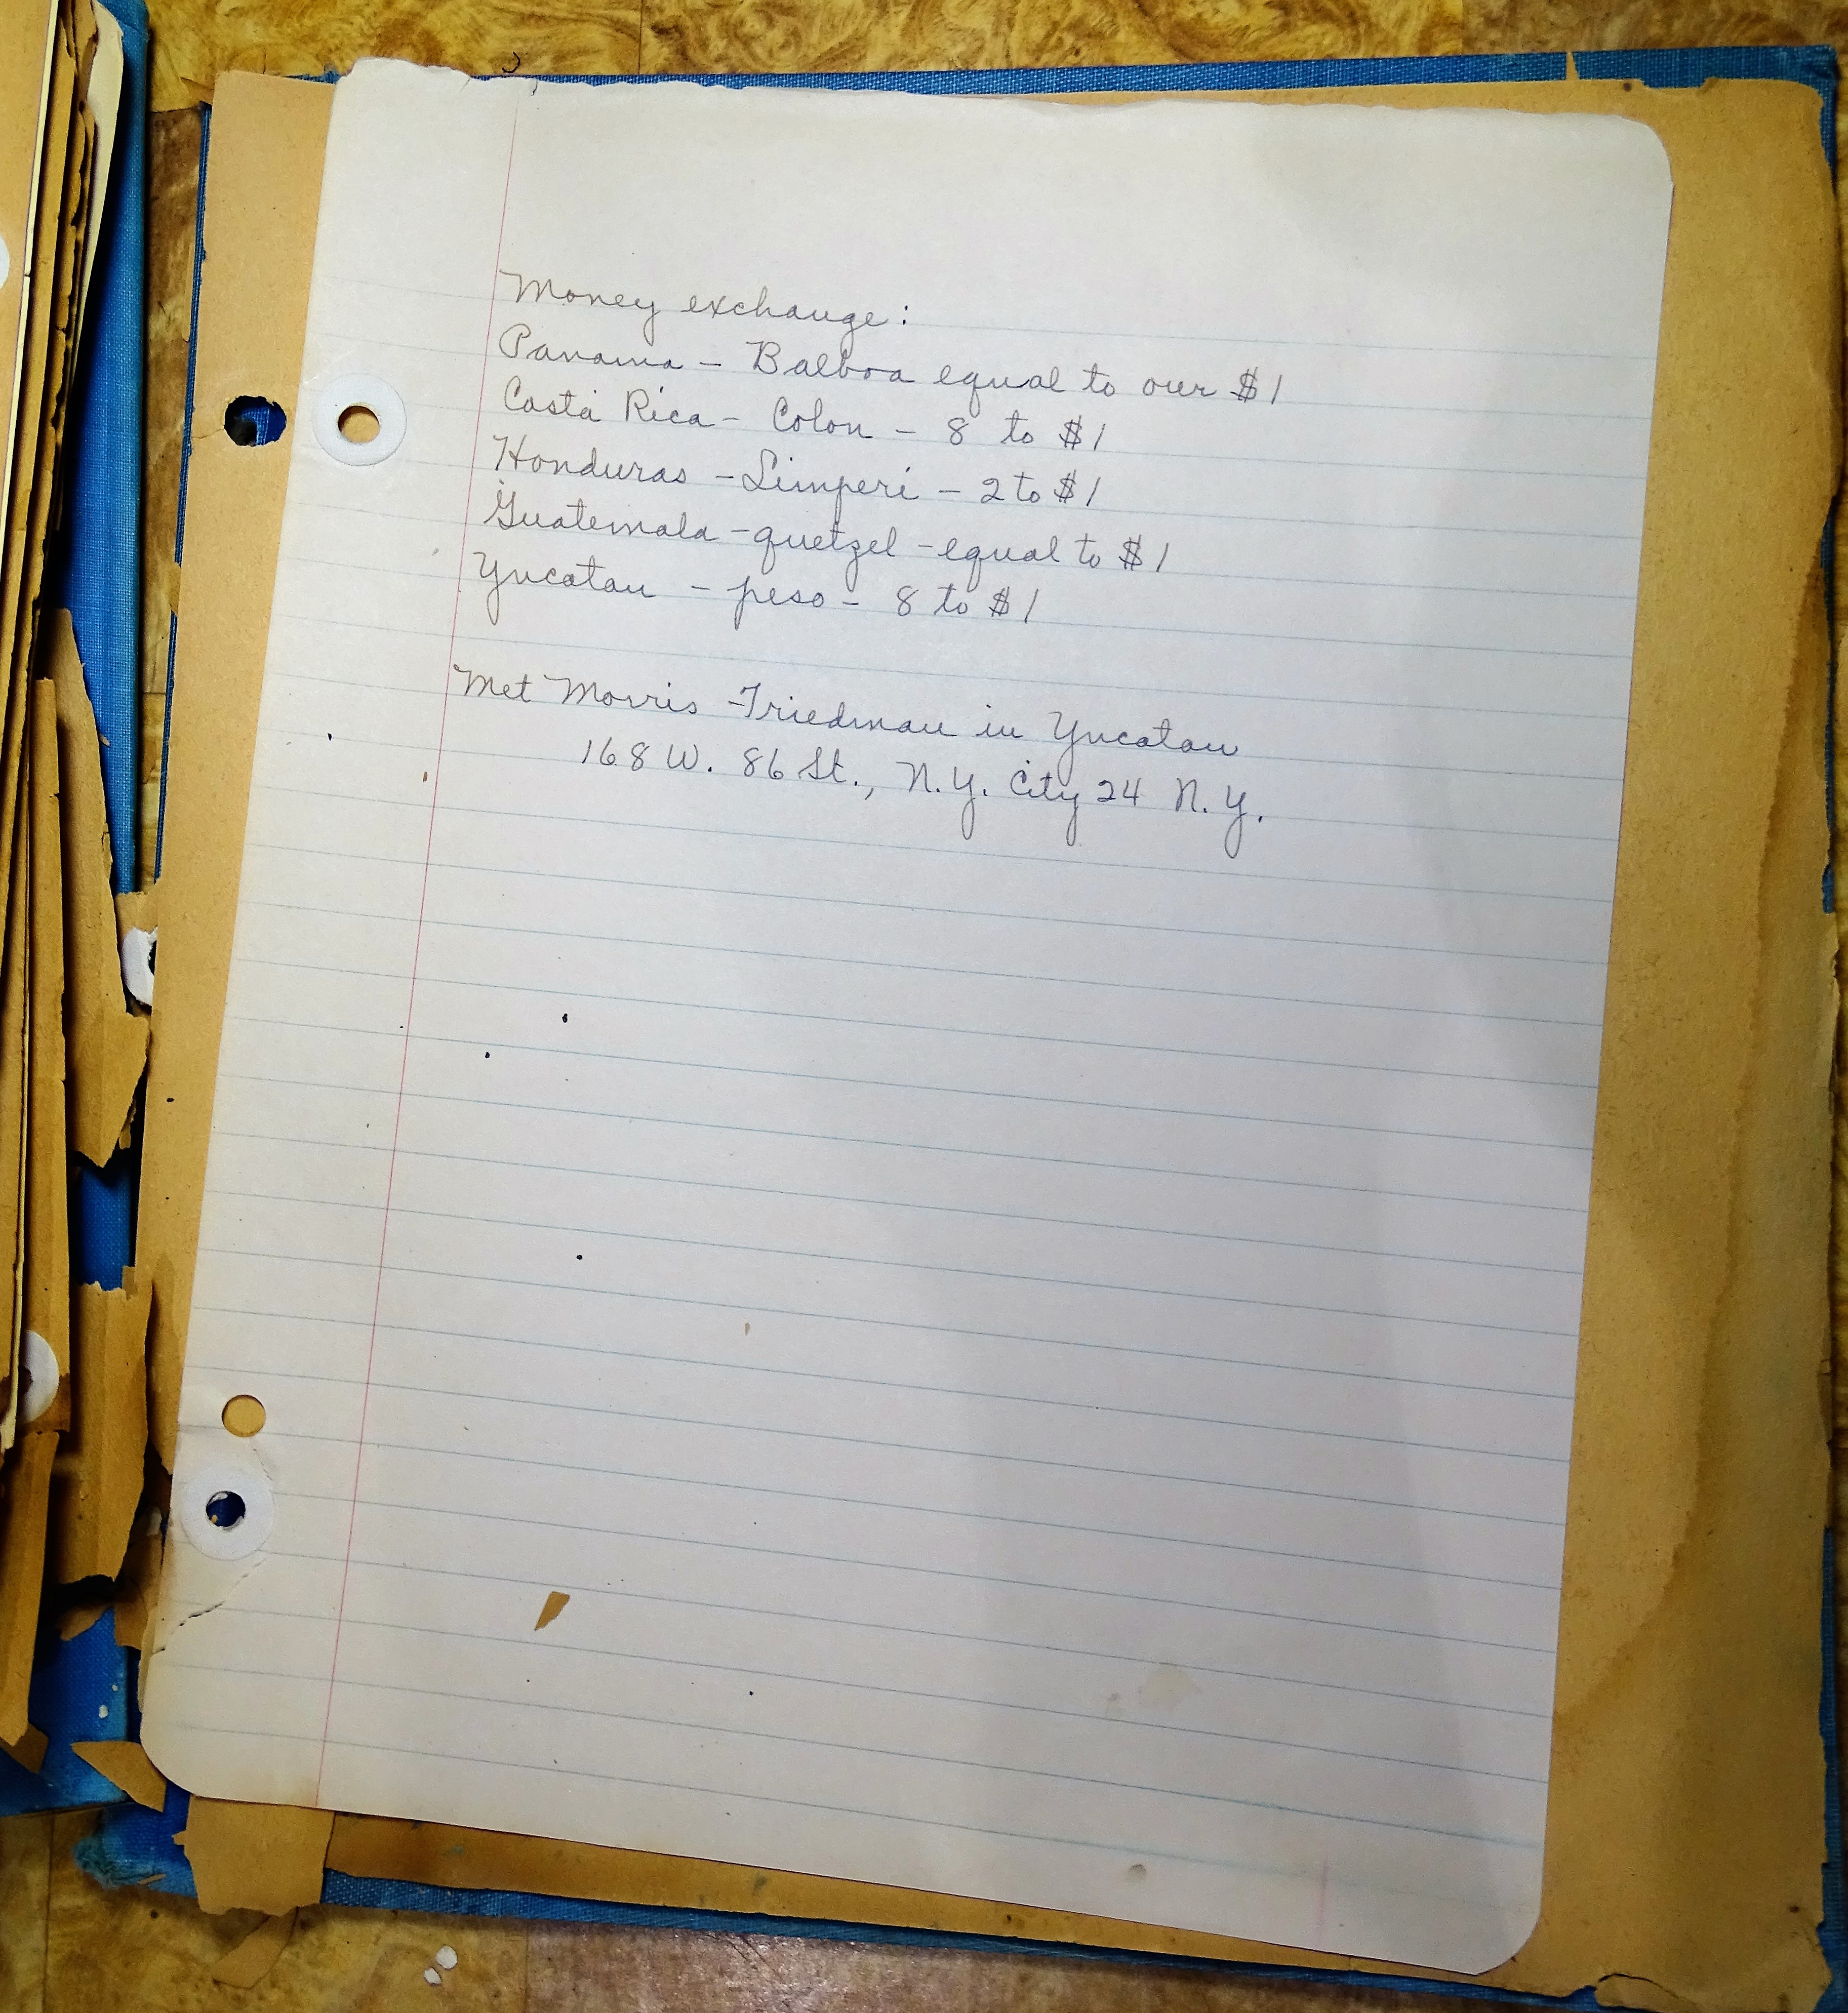 Money exchange:
Panama - Balboa equal to our $1
Costa Rica - Colon - 8 to $1
Honduras - Limperi - 2 to $1
Guatemala - quetzel - equal to $1
Yucatan - peso - 8 to $1
Met Morris Friedman in Yucatan
168 W. 86 St., N.Y. City 24 N.Y.